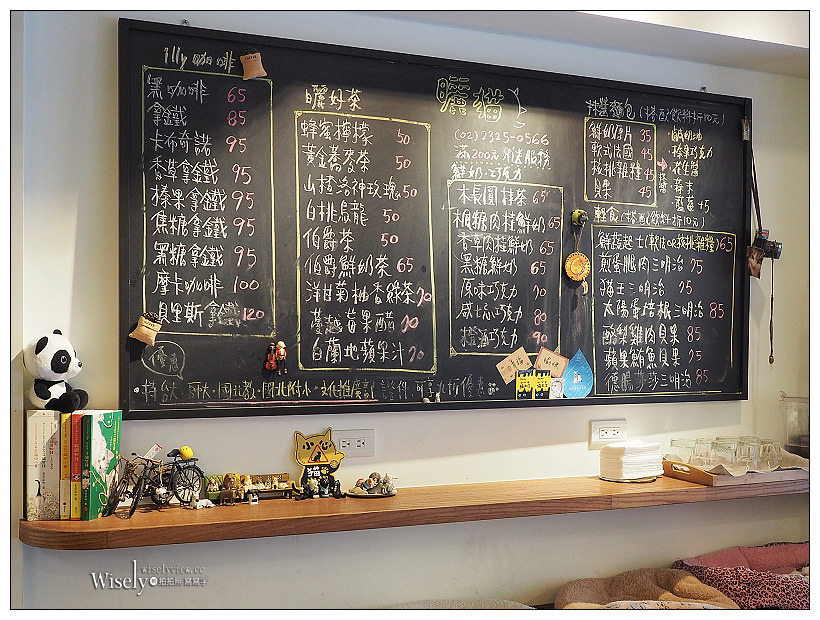 illy 咖啡
黑咖啡 65
拿鐵 85
卡布奇諾 95
香草拿鐵 95
榛果拿鐵 95
焦糖拿鐵 95
黑糖拿鐵 95
摩卡咖啡 100
貝里斯拿鐵 120
曬好茶
蜂蜜檸檬 50
黃金蕎麥茶 50
山楂洛神玫瑰 50
白排烏龍 50
伯爵茶 50
伯爵鮮奶茶 65
洋甘菊柚香綠茶 70
蔓越莓果醋 70
白蘭地蘋果汁 70
曬貓
(02)2325-0566
滿200元外送服務
鮮奶·巧克力
桂圓 65
楓糖肉桂鮮奶 65
香草肉桂鮮奶 65
黑糖鮮奶 65
原味巧克力 70
巧克力 80
橙酒巧克力 90
抹醬麵包 (搭配飲料折10元)
鮮奶厚片 35
歐式法國 45
核桃雜糧 45
貝果 45
榛果巧克力
花生醬
藍莓 +5
輕食 (搭配飲料折10元)
鮮蔬起士(軟法or核桃雜糧) 65
煎蛋腿肉三明治 75
貓王三明治 75
太陽蛋培根三明治 85
酪梨雞肉貝果 85
蘋果鮪魚貝果 75
德腸莎莎三明治 85
優惠
持台大·師大·國北教·國北附小·文化推廣部 證件,可享九折優惠
小心
貓
wiselyview.cc
Wisely
拍拍照 寫寫字